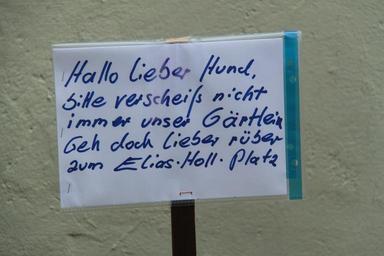 Hallo lieber Hund,
bitte verscheiß nicht
immer unser Gärtlein
Geh doch lieber rüber
zum Elias-Holl-Platz